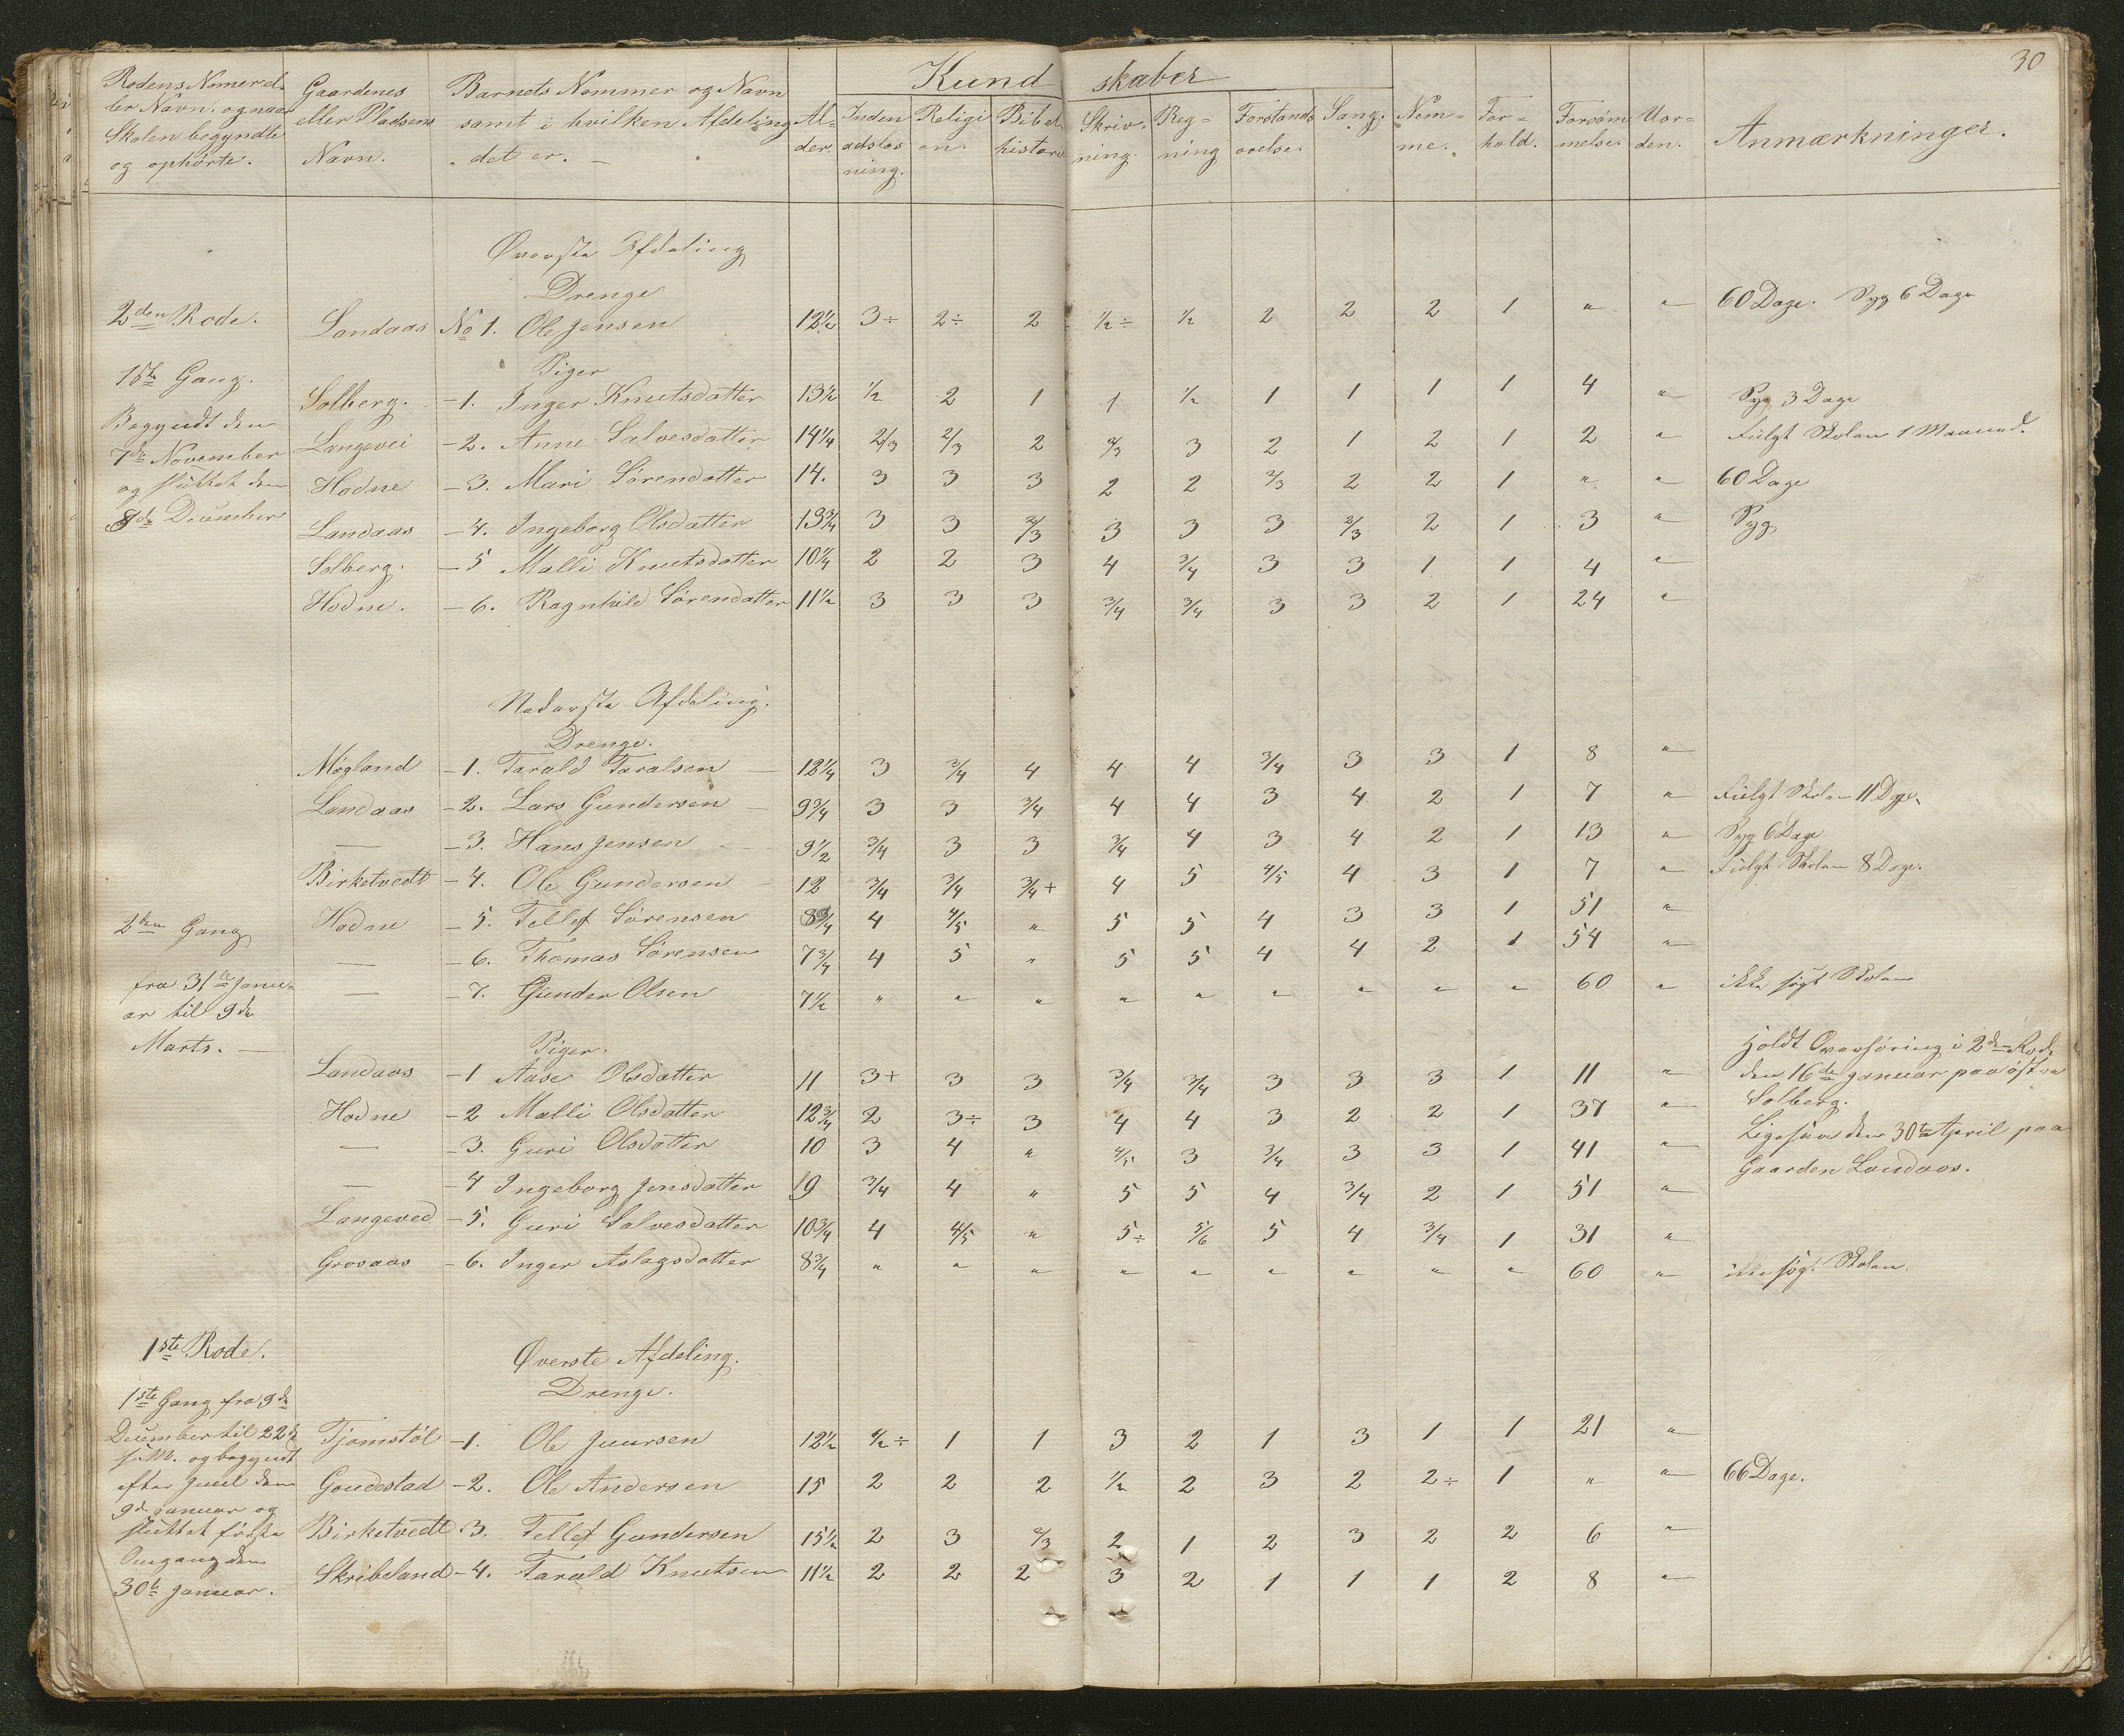 30
Kundskaber
Rodens Nomer el-
ler Navn, og naar
Skolen begyndte
og ophørte.
Gaardenes
eller Pladsens
Navn.
Barnets Nommer og Navn
samt i hvilken Afdeling
det er.
Al-
der.
Inden
adslæs
ning.
Religi
on.
Bibel
historie
Skriv-
ning.
Reg-
ning
Forstands
øvelse.
Sang.
Nem-
me.
For-
hold.
Forsøm
melse.
Uor-
den.
Anmærkninger.
Øverste Afdeling
Drenge
2den Rode. Landaas No 1. Ole Jensen 12½ 3÷ 2÷ 2 ½÷ ½ 2 2 2 1 " " 60 Dage. Syg 6 Dage
1ste Gang.
Piger
Solberg. -1. Inger Knutsdatter 13½ ½ 2 1 1 ½ 1 1 1 1 4 " Syg 3 Dage
Begyndt den
Langevei -2. Anne Salvesdatter 14¼ 2/3 2/3 2 2/3 3 2 1 2 1 2 " Fulgt Skolen 1 Maaned.
7de November
og sluttet den
Hodne -3. Mari Sørensdatter 14. 3 3 3 2 2 2/3 2 2 1 " " 60 Dage
8de December
Landaas -4. Ingeborg Olsdatter 13¾ 3 3 2/3 3 3 3 2/3 2 1 3 " Syg
Solberg. -5 Malli Knutsdatter 10¼ 2 2 3 4 3/4 3 3 1 1 4 "
Hodne. -6. Ragnhild Sørensdatter 11½ 3 3 3 3/4 3/4 3 3 2 1 24 "
Nederste Afdeling.
Drenge.
Møgland -1. Tarald Taralsen 12¼ 3 3/4 4 4 4 3/4 3 3 1 8 "
Landaas -2. Lars Gundersen 9¾ 3 3 3/4 4 4 3 4 2 1 7 " Fulgt Skolen 11 Dage.
— -3. Hans Jensen 9½ 3/4 3 3 3/4 4 3 4 2 1 13 " Syg 6 Dage
Birketvedt -4. Ole Gundersen 12 3/4 3/4 3/4+ 4 5 4/5 4 3 1 7 " Fulgt Skolen 8 Dage.
Hodne -5. Tellef Sørensen 8¾ 4 4/5 " 5 5 4 3 3 1 51 "
2den Gang
— -6. Thomas Sørensen 7¾ 4 5 " 5 5 4 4 2 1 54 "
fra 31te Janu-
ar til 9de
Marts.
— -7. Gunder Olsen 7½ " " " " " " " " " 60 " ikke søgt Skolen
Piger.
Landaas -1 Aase Olsdatter 11 3+ 3 3 3/4 3/4 3 3 3 1 11 "
Holdt Overhøring i 2den Rode
den 16de Januar paa østre
Solberg.
Hodne -2 Malli Olsdatter 12¾ 2 3÷ 3 4 4 3 2 2 1 37 "
Ligesaa den 30te April paa
Gaarden Landaas.
— -3. Guri Olsdatter 10 3 4 " 4/5 3 3/4 3 3 1 41 "
— -4 Ingeborg Jensdatter 19 3/4 4 " 5 5 4 3/4 2 1 51 "
Langeved -5. Guri Salvesdatter 10¾ 4 4/5 " 5÷ 5/6 5 4 3/4 1 31 "
Grosaas -6. Inger Aslagsdatter 8¾ " " " " " " " " " 60 " ikke søgt Skolen.
1ste Rode.
Øverste Afdeling.
Drenge.
1ste Gang fra 9de
December til 22de
s. M. og begyndt
efter Juul den
9de Januar og
sluttet første
Omgang den
30te Januar.
Tjomstøl -1. Ole Juursen 12½ ½÷ 1 1 3 2 1 3 1 1 21 "
Goudestad -2. Ole Andersen 15 2 2 2 ½ 2 3 2 2÷ 1 " " 66 Dage.
Birketvedt -3. Tellef Gundersen 15½ 2 3 2/3 2 1 2 3 2 2 6 "
Skribeland -4. Tarald Knutsen 11½ 2 2 2 3 2 1 1 1 2 8 "